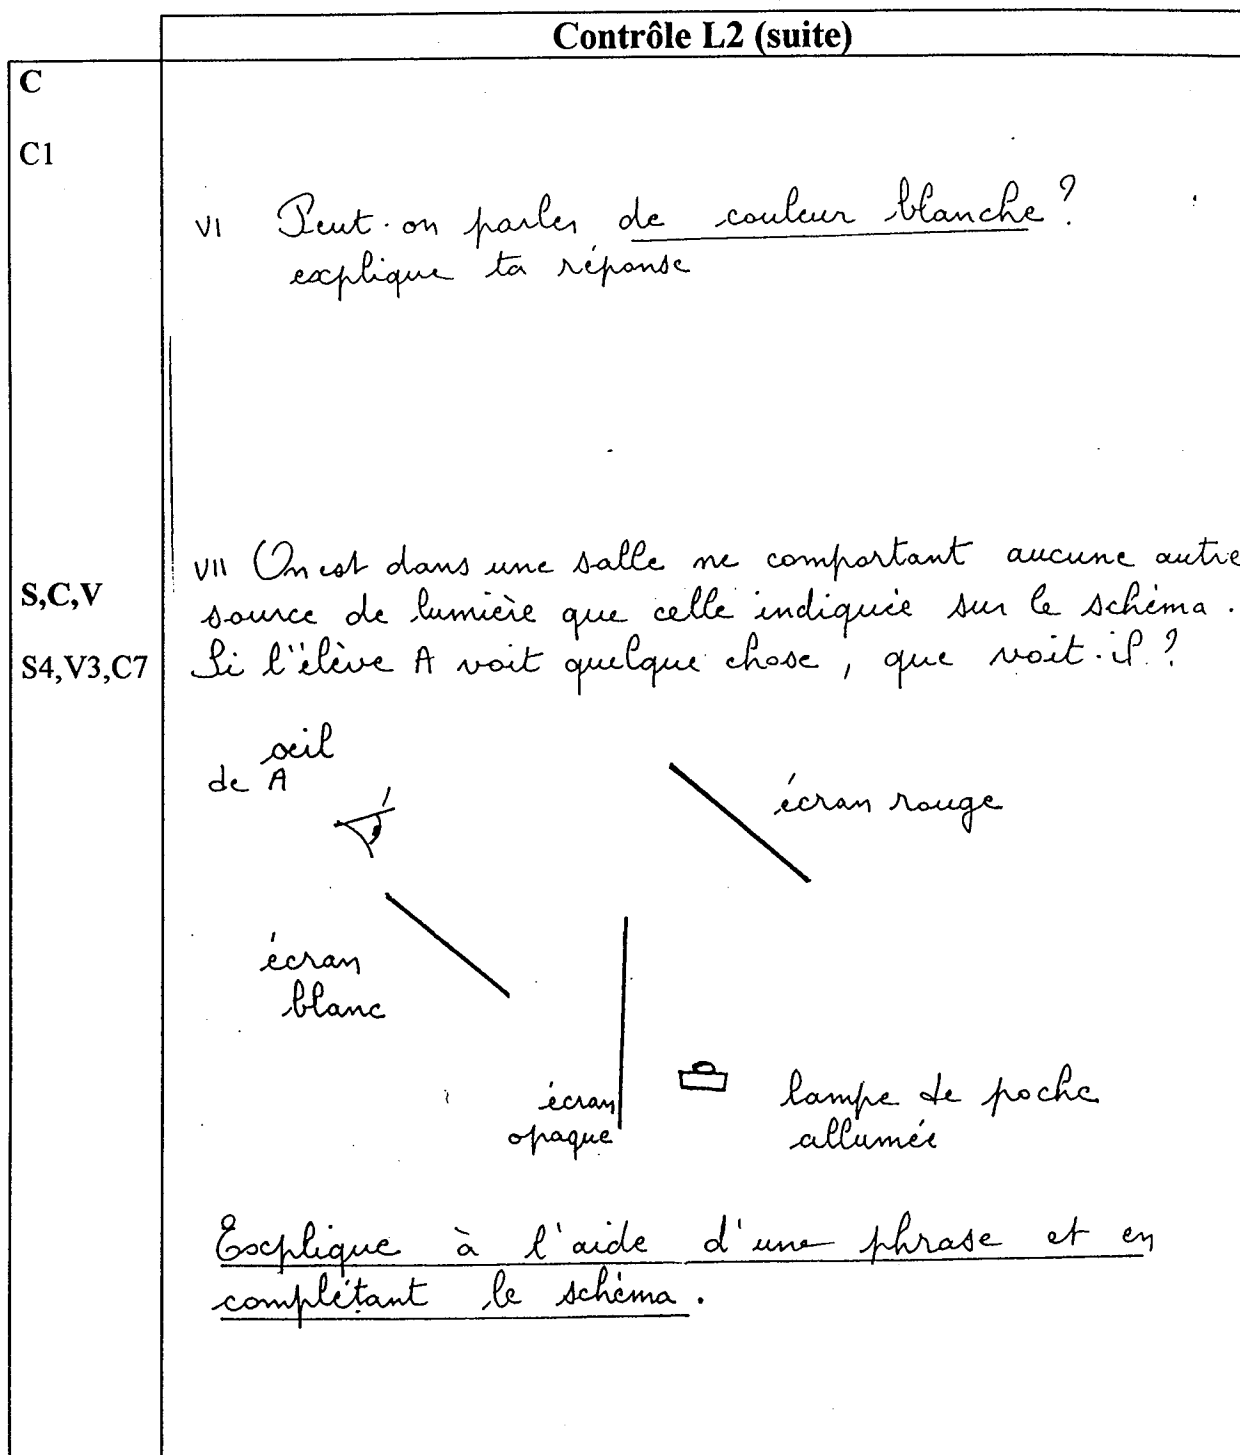 Contrôle L2 (suite)
C
C1
VI Peut-on parler de couleur blanche ?
explique ta réponse
S,C,V
S4,V3,C7
VII On est dans une salle ne comportant aucune autre
source de lumière que celle indiquée sur le schéma.
Si l'élève A voit quelque chose, que voit-il ?
œil
de A
écran rouge
écran
blanc
écran
opaque
lampe de poche
allumée
Explique à l'aide d'une phrase et en
complétant le schéma.